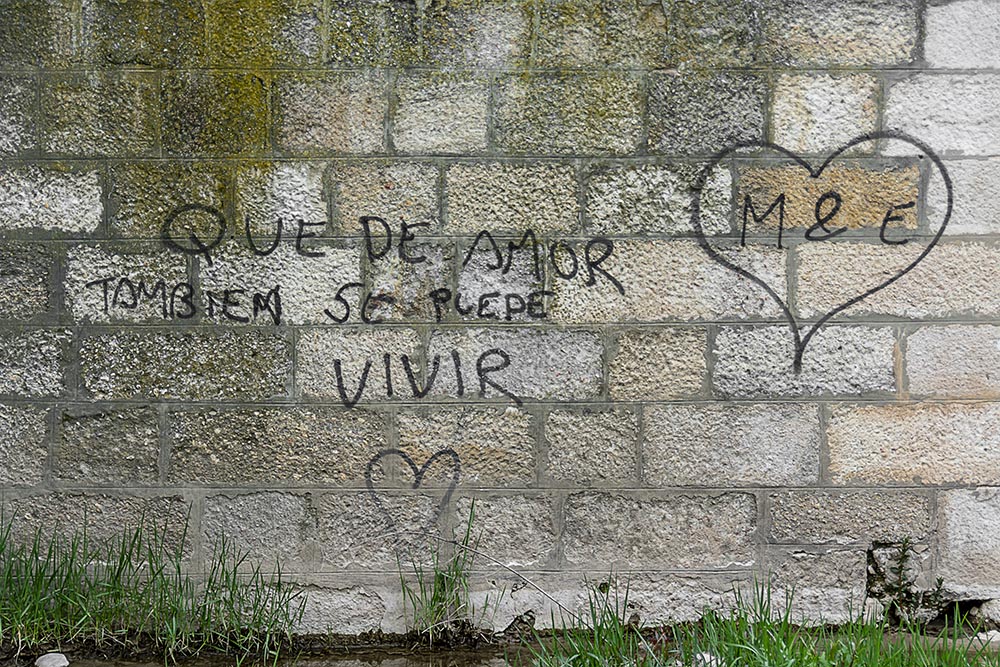 QUE DE AMOR
TAMBIEN SE PUEDE
VIVIR
M & E